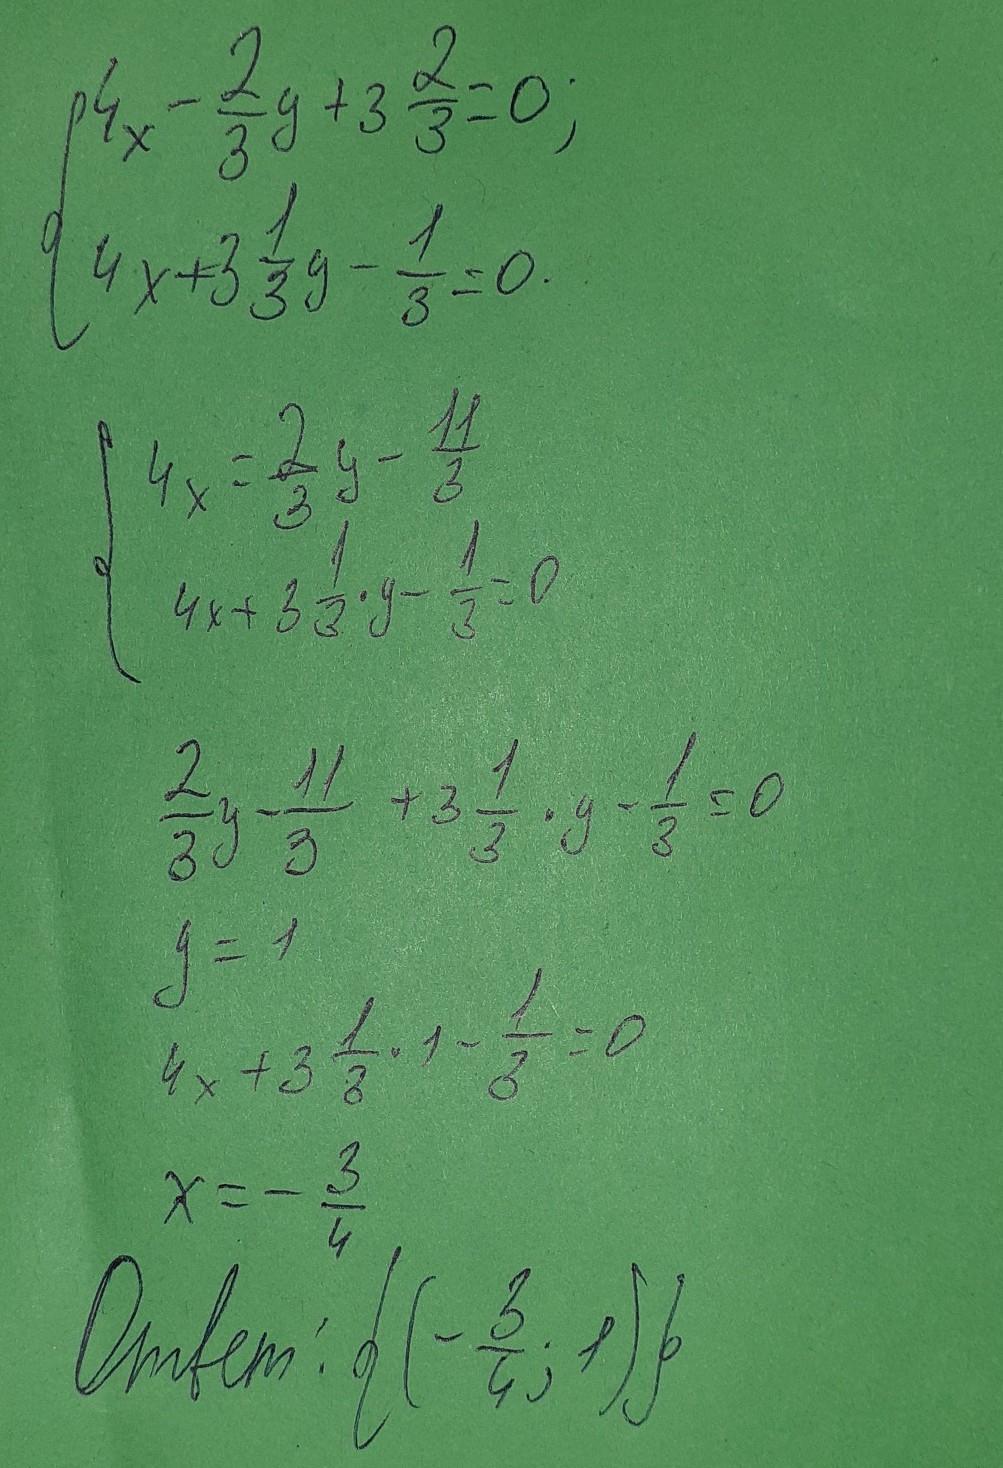 4x - 2/3 y + 3 2/3 = 0;
4x + 3 1/3 y - 1/3 = 0.
4x = 2/3 y - 11/3
4x + 3 1/3 · y - 1/3 = 0
2/3 y - 11/3 + 3 1/3 · y - 1/3 = 0
y = 1
4x + 3 1/3 · 1 - 1/3 = 0
x = - 3/4
Ответ: {(- 3/4; 1)}